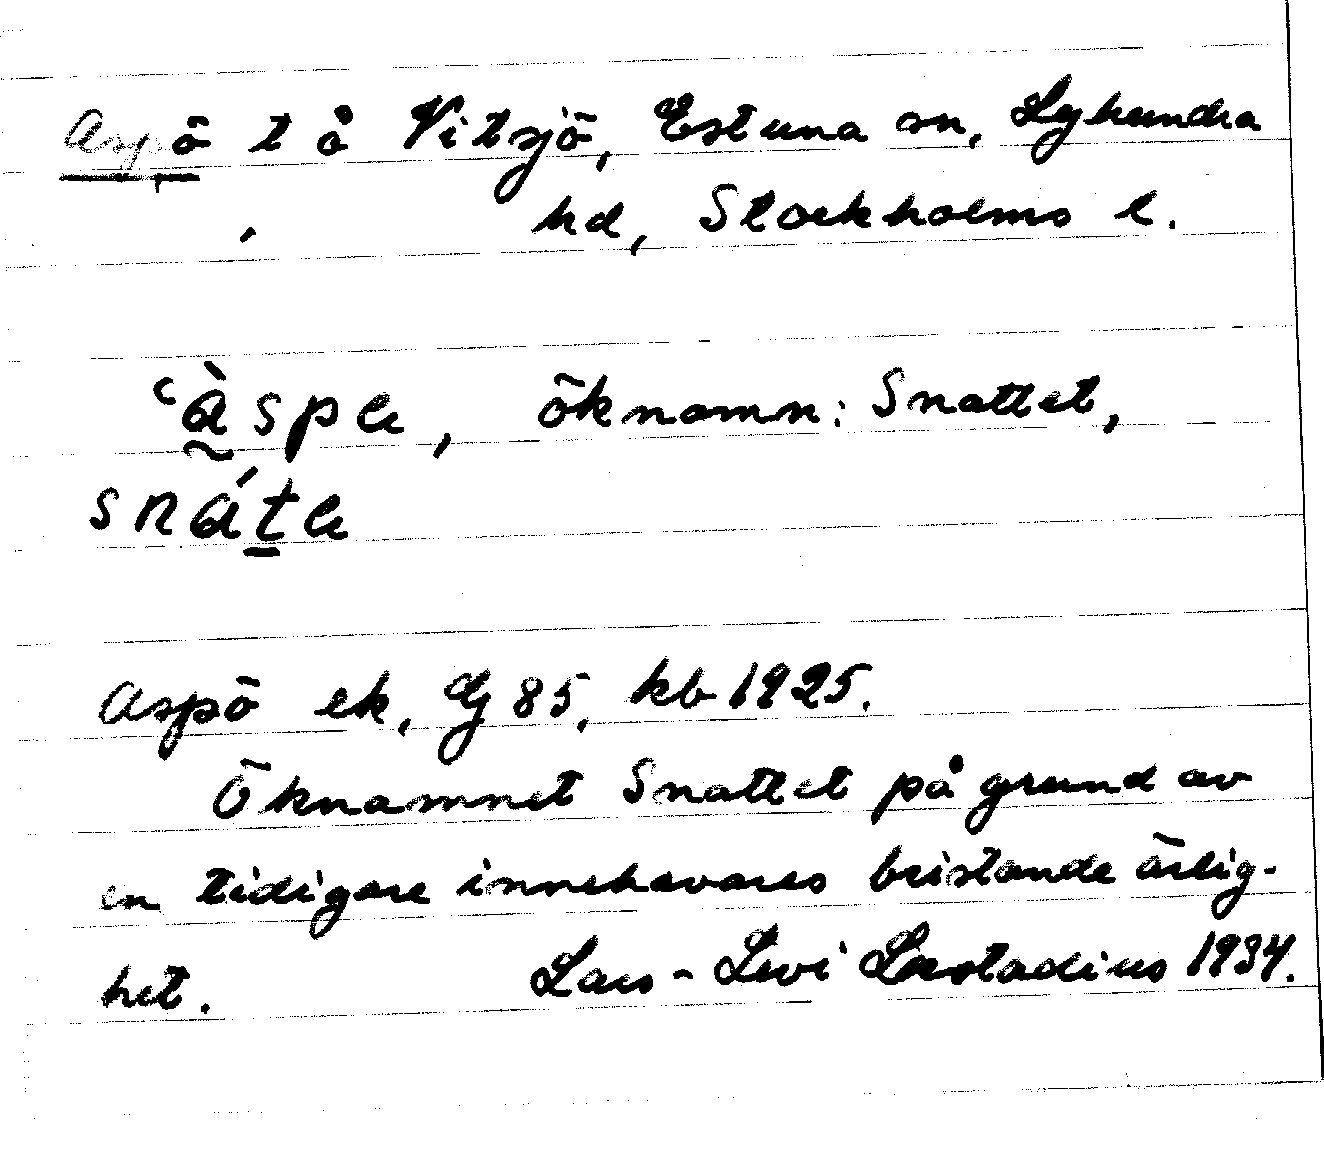 Aspö t å Vitsjö, Estuna sn, Lyhundra
hd, Stockholms l.
ʿàspe, öknamn: Snattet,
snáte
Aspö ek, Gj 85, kb 1925.
Öknamnet Snattet på grund av
en tidigare innehavares bristande ärlig-
het. Lars-Levi Læstadius 1934.